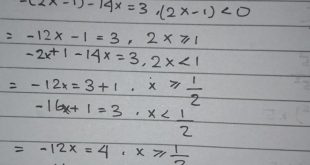 -(2x-1)-14x=3, (2x-1)<0
= -12x-1=3, 2x≥1
-2x+1-14x=3, 2x<1
= -12x=3+1, x≥1/2
-16x+1=3, x<1/2
= -12x=4, x≥1/2